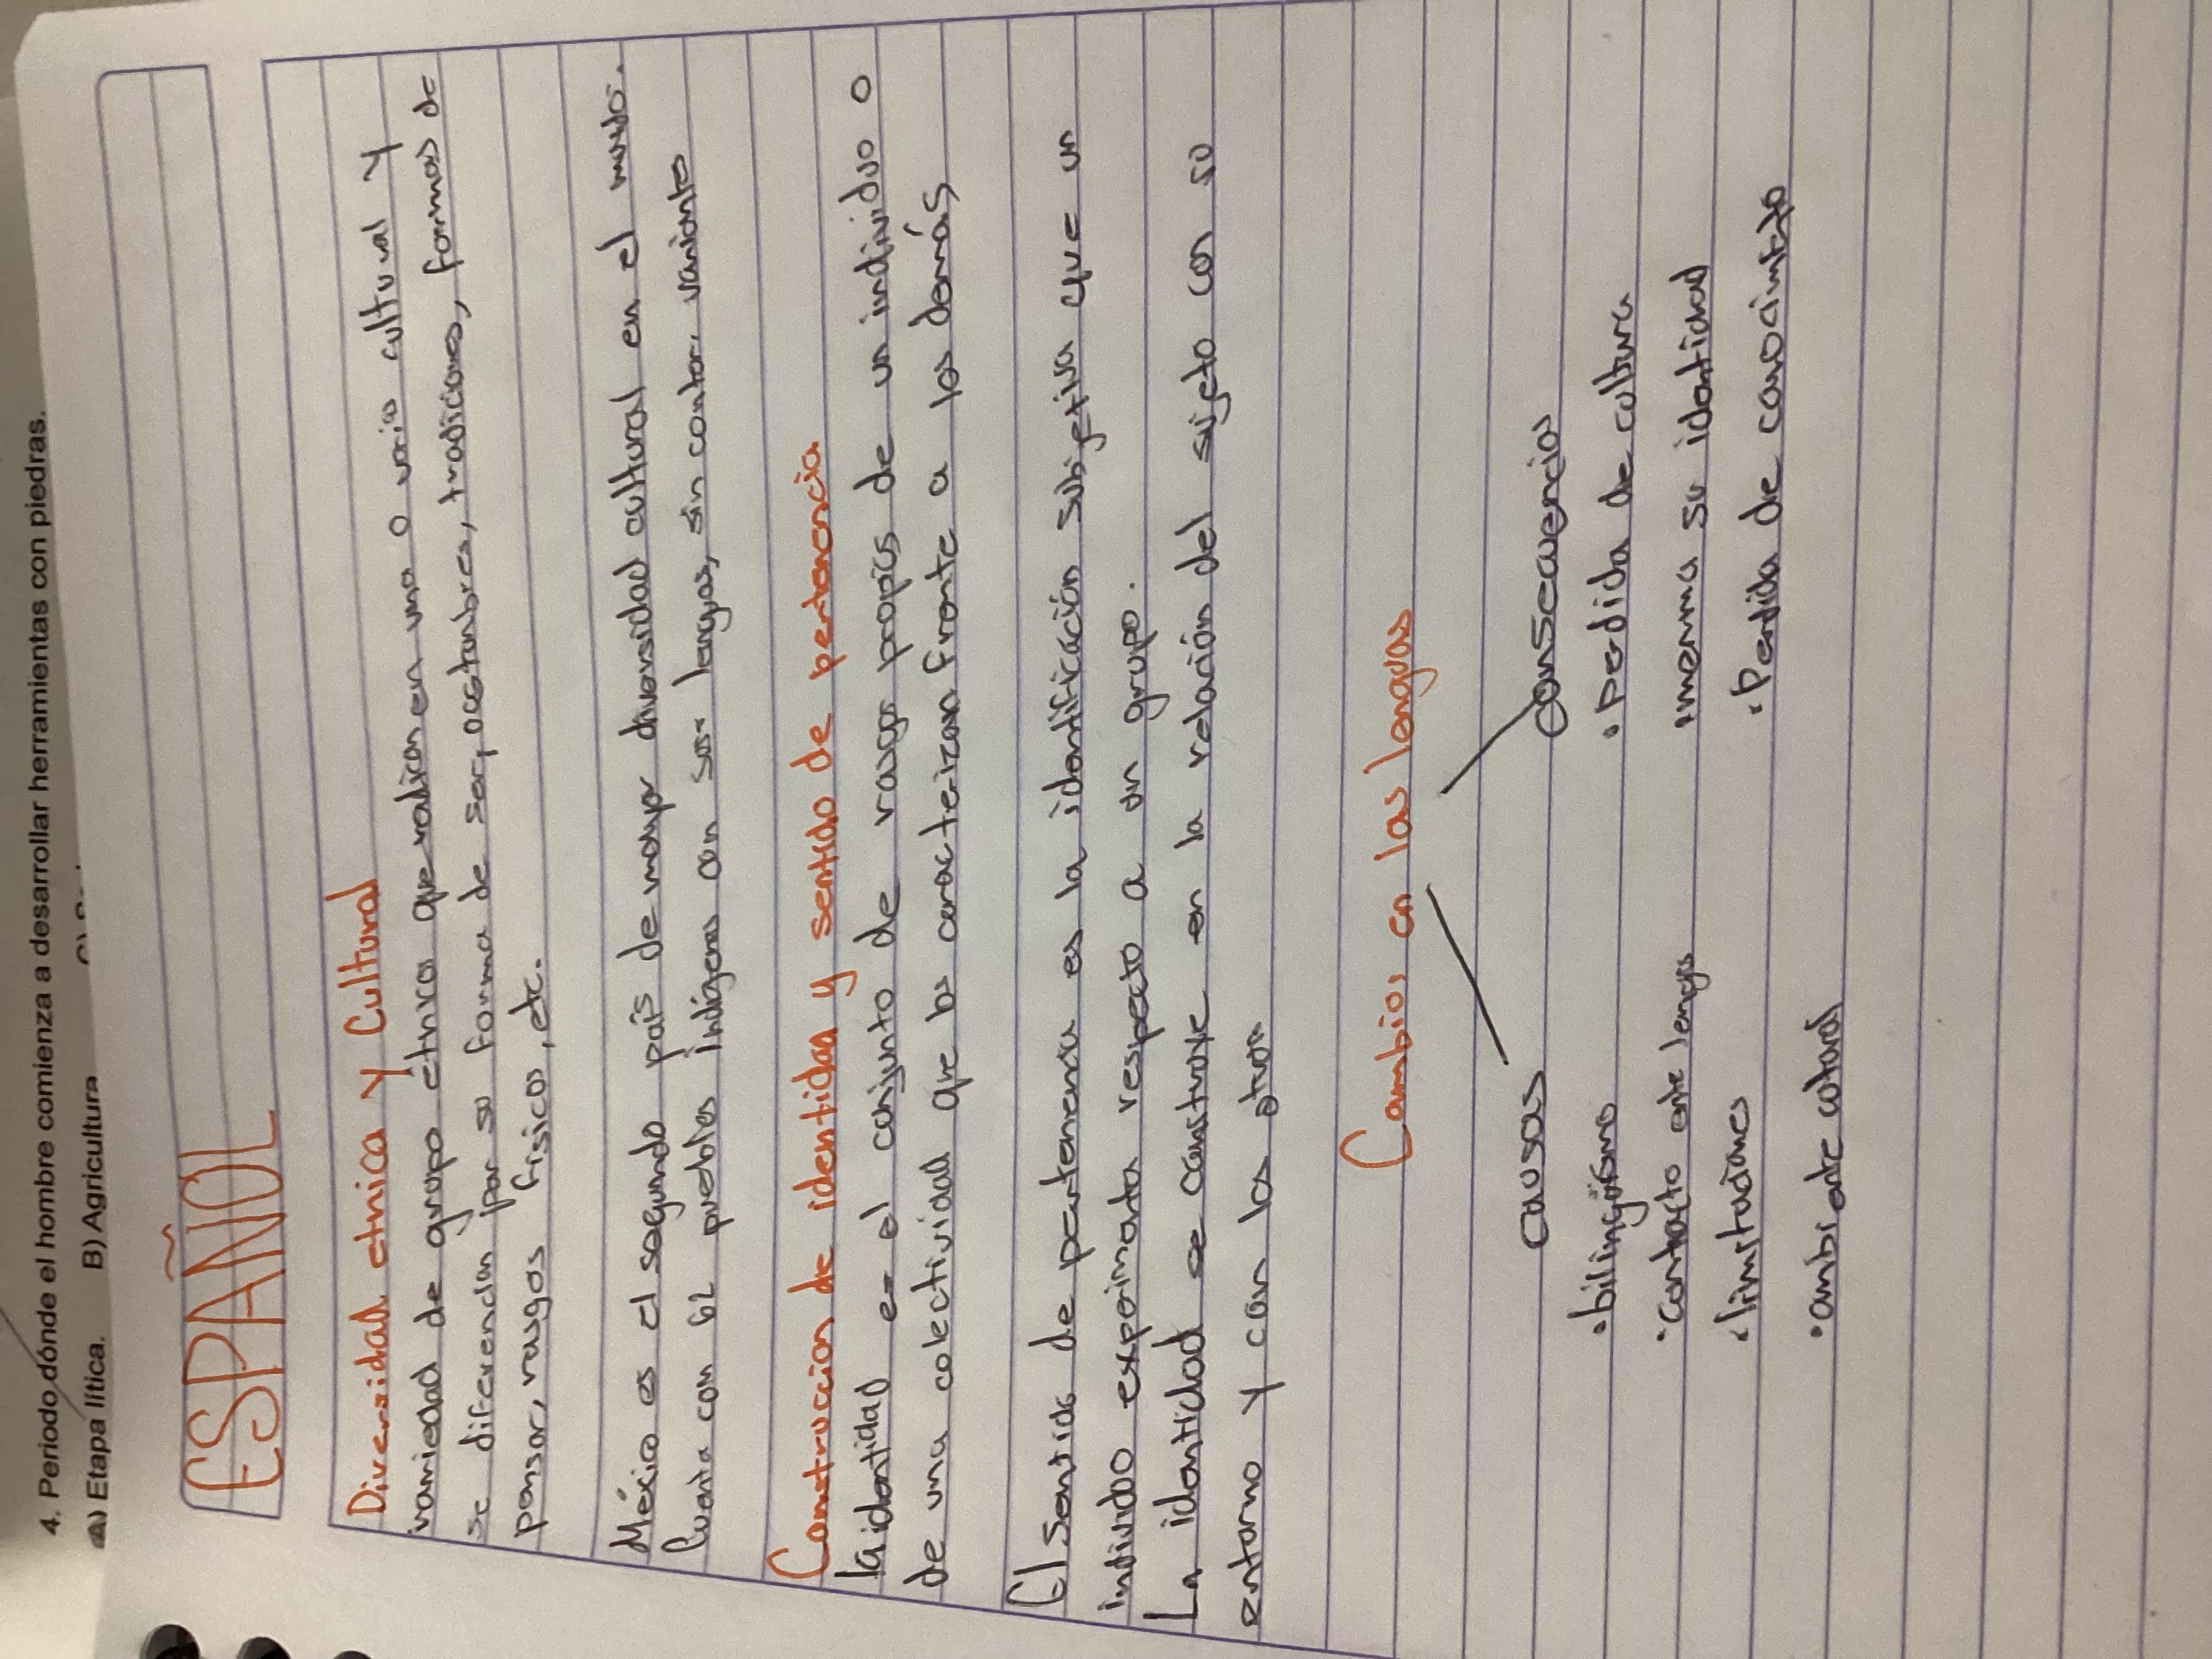 4. Periodo dónde el hombre comienza a desarrollar herramientas con piedras.
A) Etapa lítica. B) Agricultura
ESPAÑOL
Diversidad etnica y Cultural
variedad de grupo étnicos que radican en una o varis cultural y
se diferencian por su forma de ser, costumbres, tradiciones, formas de
pensar, rasgos fisicos, etc.
México es el segundo país de mayor diversidad cultural en el mundo.
Cuenta con 62 pueblos indígenas con sus lenguas, sin contar variantes
Construccion de identidad y sentido de pertenencia
la identidad es el conjunto de rasgos propios de un individuo o
de una colectividad que los caracterizan frente a los demás
El sentido de pertenencia es la identificación subjetiva que un
individuo experimenta respecto a un grupo.
La identidad se construye en la relación del sujeto con su
entorno y con los otros
Cambios en las lenguas
causas consecuencias
• bilingüismo • perdida de cultura
• contacto ente lenguas merma su identidad
• limitaciones • Perdida de conocimieto
• ambiente cultural